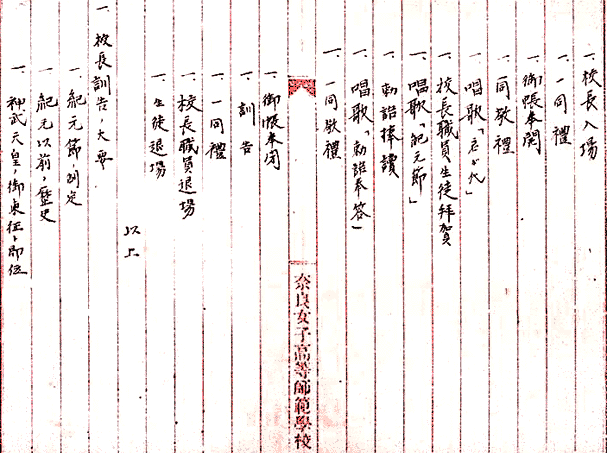 一、校長入場
一、一同禮
一、御帳奉開
一、一同敬禮
一、唱歌「君が代」
一、校長職員生徒拜賀
一、唱歌「紀元節」
一、勅語捧讀
一、唱歌「勅語奉答」
一、一同敬禮
奈良女子高等師範學校
一、御帳奉閉
一、訓告
一、一同禮
一、校長職員退場
一、生徒退場
以上
一、校長訓告ノ大要
一、紀元節ノ制定
一、紀元以前ノ歷史
一、神武天皇ノ御東征ト即位